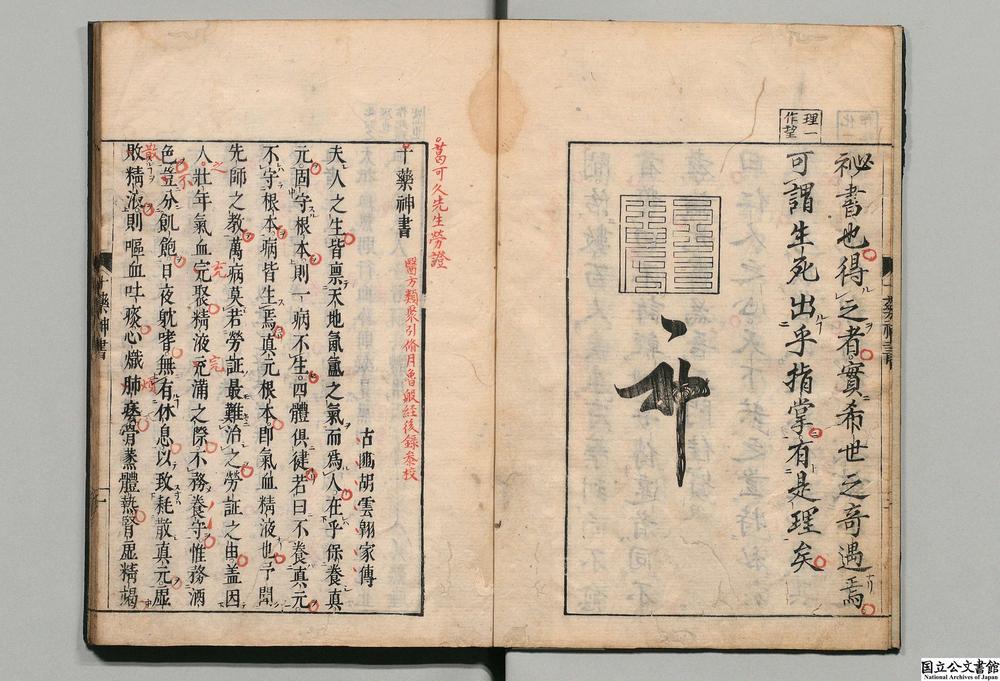 理一
作望
祕書也得之者實希世之奇遇焉
可謂生死出乎指掌有是理矣
葛可久先生勞證
十藥神書
醫方類聚引脩月魯般經後錄參校
古瀛胡雲翱家傳
夫人之生皆稟天地氤氳之氣而爲人在乎保養真
元固守根本則一病不生四體俱健若曰不養真元
不守根本病皆生焉真元根本即氣血精液也予聞
先師之教萬病莫若勞証最難治之勞証之由盖因
人壯年氣血完聚精液充滿之際不務養守惟務酒
色豈分飢飽日夜躭嗜無有休息以致耗散真元虛
敗精液則嘔血吐痰心熾肺痿骨蒸體熱腎虛精竭
十藥神書
一
国立公文書館
National Archives of Japan